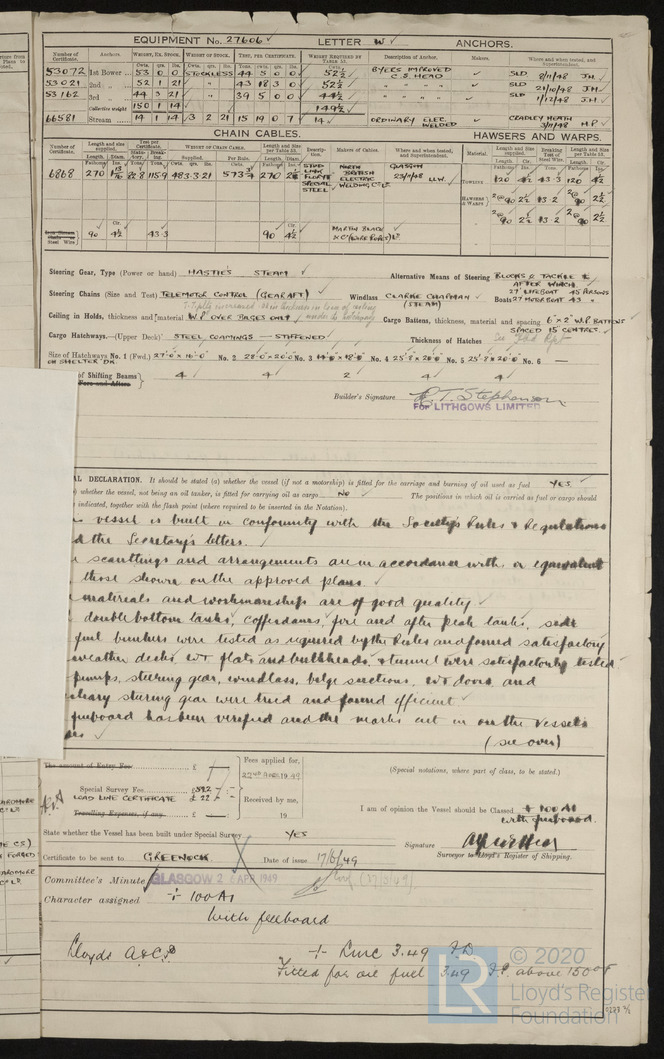 EQUIPMENT No. 27606 LETTER W ANCHORS.
Number of Certificate. Anchors. WEIGHT, EX. STOCK. WEIGHT OF STOCK. TEST, PER CERTIFICATE. WEIGHT REQUIRED BY TABLE 53. Description of Anchor. Makers. Where and when tested, and Superintendent.
53072 1st Bower 53 0 0 STOCKLESS 44 5 0 0 52½ BYERS IMPROVED C.S. HEAD SLD 8/11/48 JM
53021 2nd " 52 1 21 " 43 18 3 0 52½ " " " " SLD 21/10/48 JM
53162 3rd " 44 3 21 " 39 5 0 0 44½ " " " " SLD 1/12/48 JM
Collective weight 150 1 14 149½
66581 Stream 14 1 14 3 2 21 15 19 0 7 14 ORDINARY ELEC. WELDED CRADLEY HEATH 3/11/48 H.P.
CHAIN CABLES. HAWSERS AND WARPS.
Number of Certificate. Length and size supplied. Test per Certificate. WEIGHT OF CHAIN CABLE. Length and size per Table 53. Description. Makers of Cables. Where and when tested, and Superintendent. Material. Length and size supplied. Breaking Test of Steel Wire. Length and size per Table 53.
6868 270 82.8 115.9 483.3.21 573¾ 270 STUD LINK SPECIAL STEEL NORTH BRITISH ELECTRIC WELDING Co Ld. GLASGOW 23/11/48 LLW. TOWLINE 120 4½ 43.3 120 4½
HAWSERS & WARPS 2@90 2½ 13.2 2@90 2½
2@90 2½ 13.2 2@90 2½
Steel Wire 90 4½ 43.3 90 4½ MARTIN BLACK & Co (WIRE ROPES) Ld.
Steering Gear, Type (Power or hand) HASTIE'S STEAM Alternative Means of Steering BLOCKS & TACKLE & AFTER WINCH
Steering Chains (Size and Test) TELEMOTOR CONTROL (GEAR AFT) Windlass CLARKE CHAPMAN (STEAM) Boats 27' LIFEBOAT 45 PERSONS 27' MOTOR BOAT 43 "
Ceiling in Holds, thickness and material W.P. OVER BILGES ONLY Cargo Battens, thickness, material and spacing 6"x2" W.P. BATTENS SPACED 15" CENTRES.
Cargo Hatchways.—(Upper Deck) STEEL COAMINGS — STIFFENED Thickness of Hatches See Rpt
Size of Hatchways No. 1 (Fwd.) 27'-0"x16'-0" No. 2 28'-0"x20'-0" No. 3 No. 4 25'-8"x20'-0" No. 5 25'-8"x20'-0" No. 6 —
ON SHELTER DK.
of Shifting Beams 4 4 2 4 4
Builder's Signature R. T. Stephenson
FOR LITHGOWS LIMITED
AL DECLARATION. It should be stated (a) whether the vessel (if not a motorship) is fitted for the carriage and burning of oil used as fuel YES.
whether the vessel, not being an oil tanker, is fitted for carrying oil as cargo No The positions in which oil is carried as fuel or cargo should
indicated, together with the flash point (where required to be inserted in the Notation).
vessel is built in conformity with the Society's Rules & Regulations
the Secretary's letters.
scantlings and arrangements are in accordance with or equivalent
those shown on the approved plans.
materials and workmanship are of good quality
double bottom tanks, cofferdams, fore and after peak tanks, side
fuel bunkers were tested as required by the Rules and found satisfactory
weather decks, WT flats and bulkheads, & tunnel were satisfactorily tested.
pumps, steering gear, windlass, bilge suctions, WT doors and
steering gear were tried and found efficient
freeboard has been verified and the marks cut in on the vessel's
(see over)
The amount of Entry Fee £ Fees applied for, 22nd 1949 (Special notations, where part of class, to be stated.)
Special Survey Fee £ Received by me,
LOAD LINE CERTIFICATE £ 22 19
Travelling Expenses, if any £ I am of opinion the Vessel should be Classed + 100 A1 with freeboard.
State whether the Vessel has been built under Special Survey YES
Signature
Surveyor to Lloyd's Register of Shipping.
Certificate to be sent to GREENOCK Date of issue 17/5/49
Committee's Minute GLASGOW 26 APR 1949
Character assigned + 100 A1
with freeboard
Lloyds A&CP + LMC 3.49 F.D
Fitted for oil fuel 3.49 F.P. above 150°F
LR © 2020
Lloyd's Register
Foundation